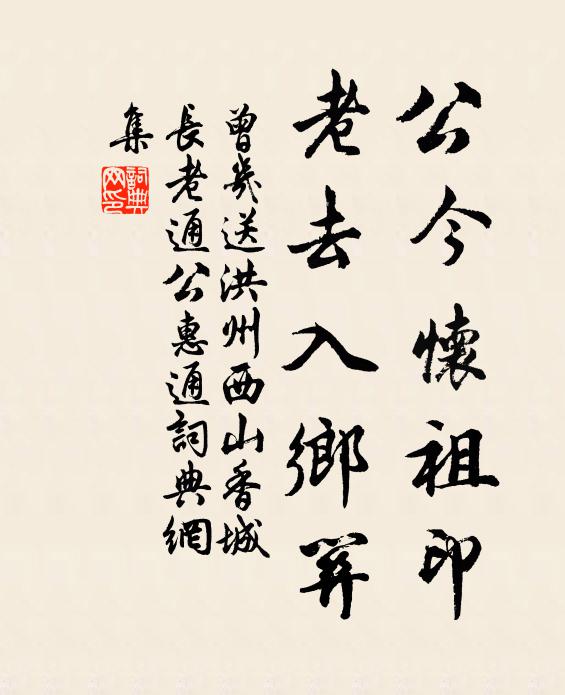 公今懷祖印
老去入鄉關
曾幾送洪州西山香城
長老通公惠通詞典網
集
詞典
网印